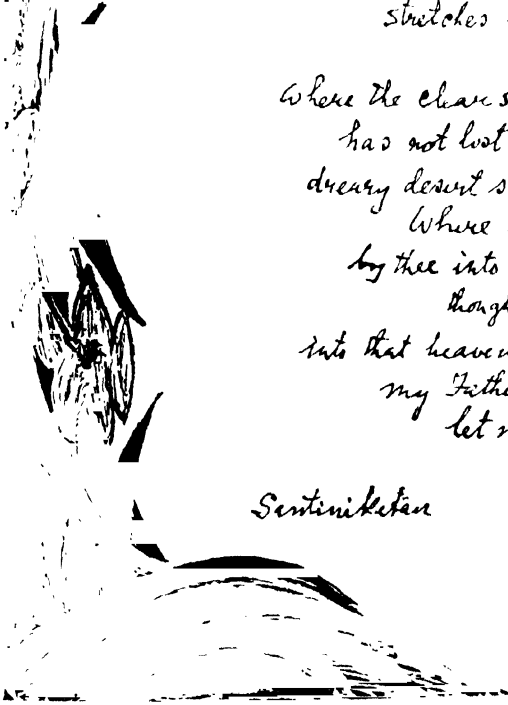 stretches
Where the clear s
has not lost
dreary desert s
Where
by thee into
though
into that heaven
my Fathe
let
Santiniketan